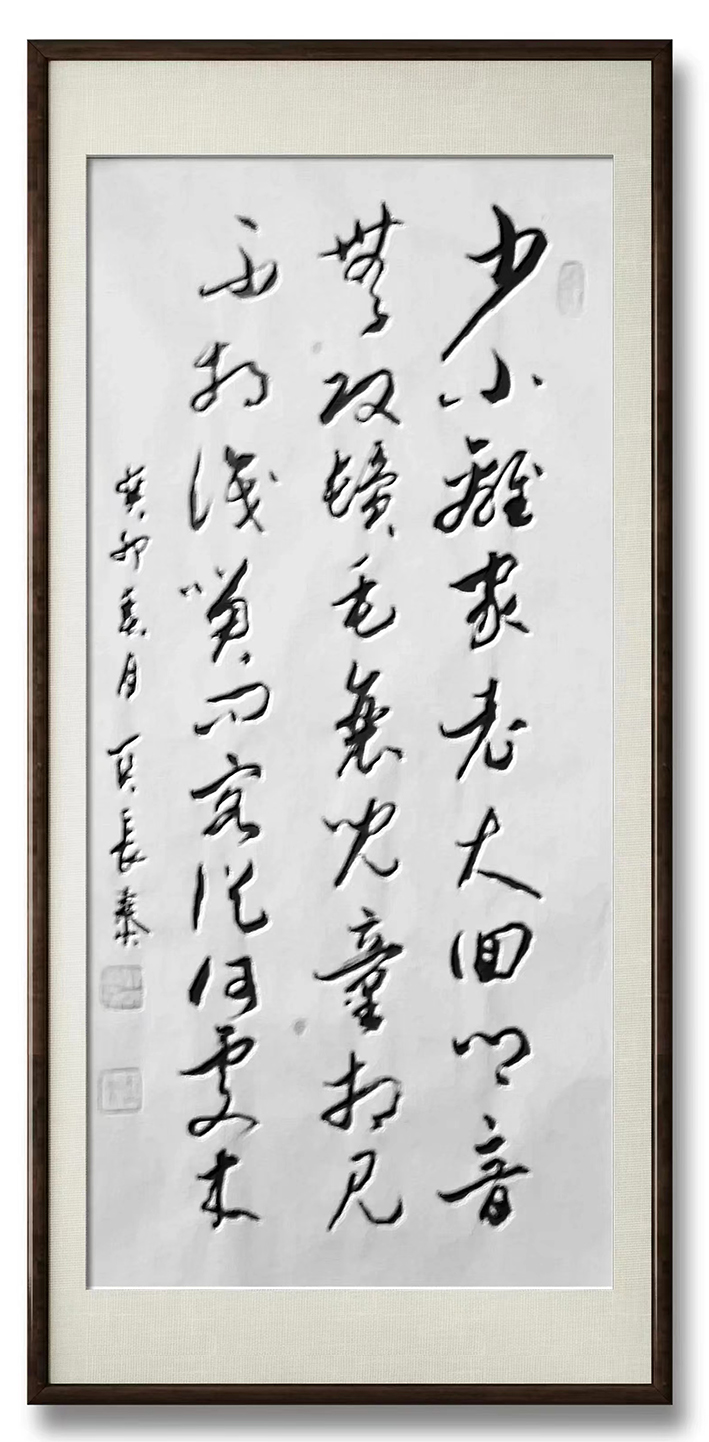 少小離家老大囬鄉音
無改鬢毛衰兒童相見
不相識笑問客從何處來
癸卯月長泰